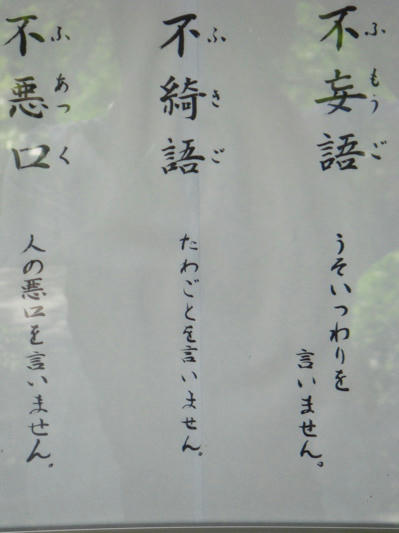 不妄語
ふもうご
うそいつわりを
言いません。
不綺語
ふきご
たわごとを言いません。
不悪口
ふあっく
人の悪口を言いません。